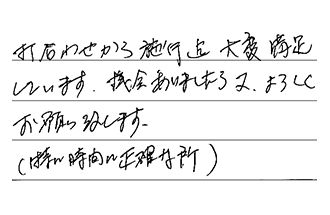 打合わせから施行迄 大変満足
しています。機会ありましたら又、よろしく
お願い致します。
(特に時間に正確な所)